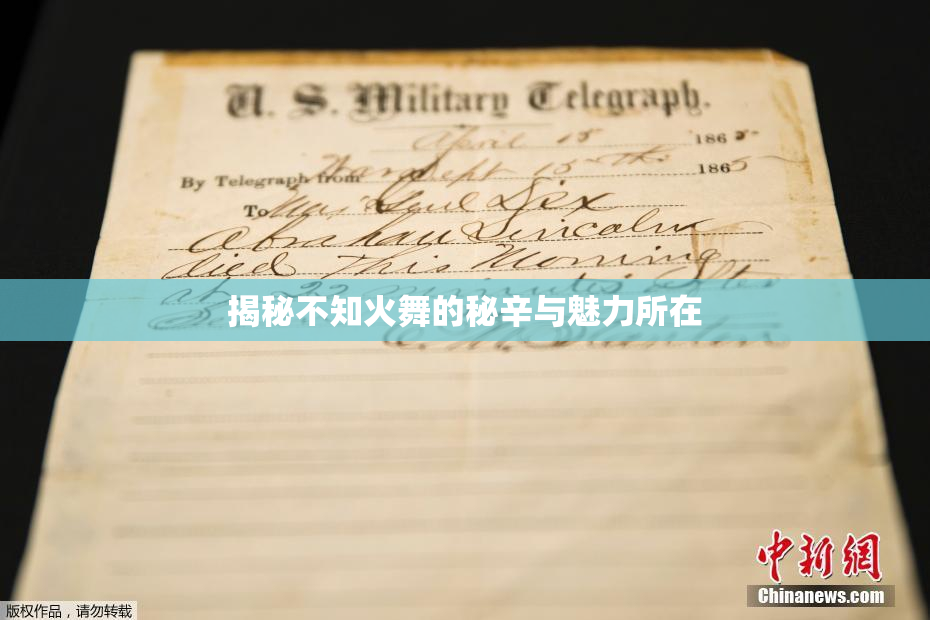 U. S. Military Telegraph.
April 15 1865
By Telegraph from War Dept 15th 1865
To Maj Genl Dix
Abraham Lincoln
died This Morning
at 22 minutes after
揭秘不知火舞的秘辛与魅力所在
中新网
Chinanews.com
版权作品，请勿转载